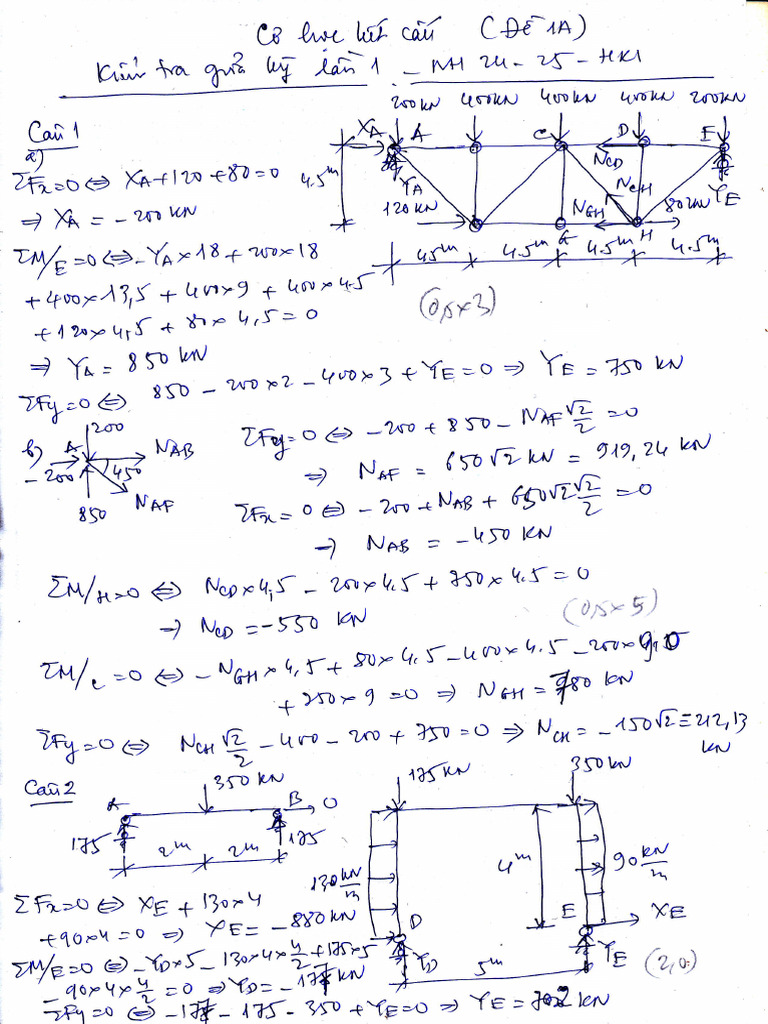 Cơ học kết cấu (Đề 1A)
Kiểm tra giữa kỳ lần 1 - NH 24-25-HK1
Câu 1
a)
ΣFx=0 ⇔ XA+120+80=0
⇒ XA = -200 kN
ΣM/E=0 ⇔ -YA×18+200×18
+400×13,5+400×9+400×4.5
+120×4,5+80×4,5=0
⇒ YA = 850 kN
200kN 400kN 400kN 400kN 200kN
XA A C D E
4.5m
NCD
YA NCH YE
120kN NGH 80kN
G H
4.5m 4.5m 4.5m 4.5m
(0,5×3)
ΣFy=0 ⇔ 850-200×2-400×3+YE=0 ⇒ YE=750 kN
b) A 200
NAB
-200 450
850 NAF
ΣFy=0 ⇔ -200+850-NAF√2/2=0
⇒ NAF = 650√2 kN = 919,24 kN
ΣFx=0 ⇔ -200+NAB+650√2√2/2=0
→ NAB = -450 kN
ΣM/H=0 ⇔ NCD×4,5-200×4.5+750×4.5=0
→ NCD=-550 kN
(0,5×5)
ΣM/C=0 ⇔ -NGH×4,5+80×4.5-400×4.5-200×9,0
+750×9=0 ⇒ NGH=780 kN
ΣFy=0 ⇔ NCH√2/2-400-200+750=0 ⇒ NCH=-150√2=212,13
kN
Câu 2
350kN
A B 0
175 175
2m 2m
175kN 350kN
130kN/m 4m 90kN/m
D E XE
YD YE
5m
(2,0)
ΣFx=0 ⇔ XE+130×4
+90×4=0 ⇒ XE=-880kN
ΣM/E=0 ⇔ -YD×5-130×4×4/2+175×5
-90×4×4/2=0 ⇒ YD=-177kN
ΣFy=0 ⇔ -177-175-350+YE=0 ⇒ YE=702kN